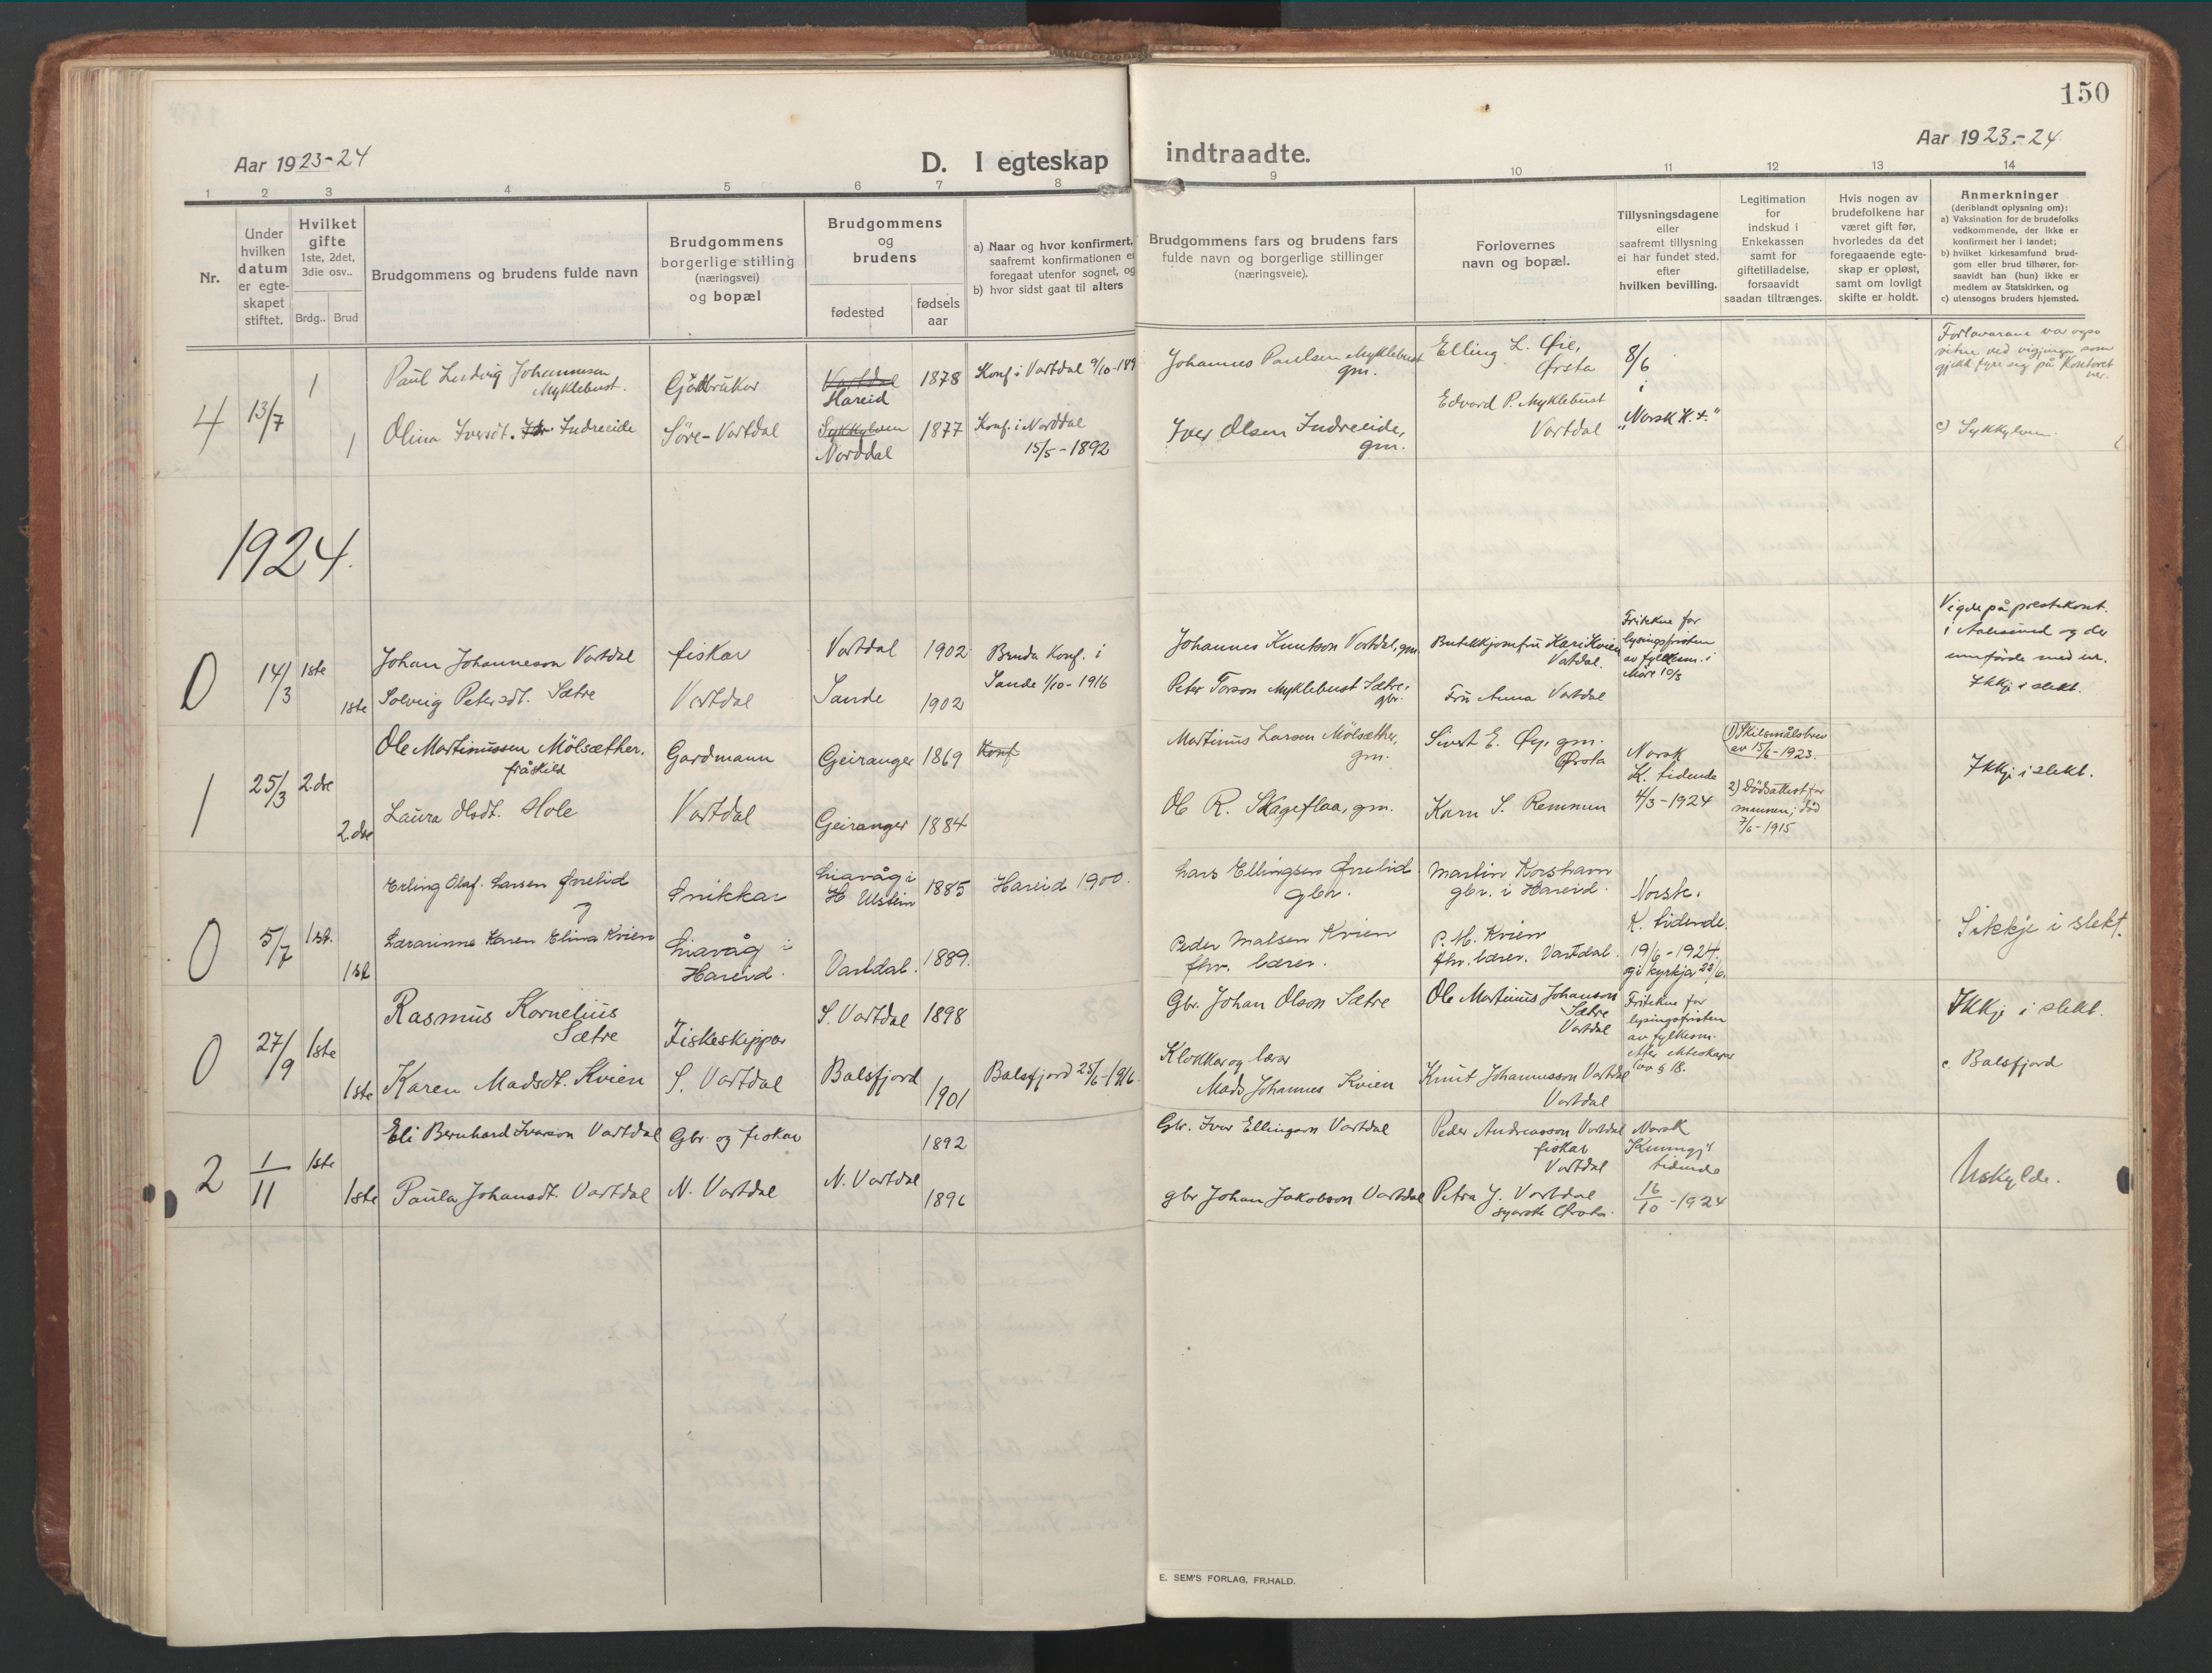 150
Aar 1923-24
D. I egteskap
indtraadte.
Aar 1923.-24
1 2 3 4 5 6 7 8 9 10 11 12 13 14
Nr.
Under
hvilken
datum
er egte-
skapet
stiftet.
Hvilket
gifte
1ste, 2det,
3die osv..
Brdg.. Brud
Brudgommens og brudens fulde navn
Brudgommens
borgerlige stilling
(næringsvei)
og bopæl
Brudgommens
og
brudens
fødested
fødsels
aar
a) Naar og hvor konfirmert,
saafremt konfirmationen e
foregaat utenfor sognet, og
b) hvor sidst gaat til alters
Brudgommens fars og brudens fars
fulde navn og borgerlige stillinger
(næringsveie).
Forlovernes
navn og bopæl.
Tillysningsdagene
eller
saafremt tillysning
ei har fundet sted,
efter
hvilken bevilling.
Legitimation
for
indskud i
Enkekassen
samt for
giftetilladelse,
forsaavidt
saadan tiltrænges.
Hvis nogen av
brudefolkene har
været gift før,
hvorledes da det
foregaaende egte-
skap er opløst,
samt om lovligt
skifte er holdt.
Anmerkninger
(deriblandt oplysning om):
a) Vaksination for de brudefolks
vedkommende, der ikke er
konfirmert her i landet;
b) hvilket kirkesamfund brud-
gom eller brud tilhører, for-
saavidt han (hun) ikke er
medlem av Statskirken, og
c) utensogns bruders hjemsted.
4
13/7
1
1
Paul Ludvig Johannesen
Myklebust.
Olina Iversdt. Indreeide
Gardbrukar
Søre-Vartdal
Vartdal
Hareid
1878
Sykkylven
Norddal
1877
Konf. i Vartdal 9/10-189
Konf. i Norddal
15/5-1892
Johannes Paulsen Myklebust
gm.
Iver Olsen Indreeide,
gm.
Elling L. Øie,
Ørsta
Edvard P. Myklebust
Vartdal
8/6
i
"Norsk K.t."
Forlovarane var ogso
vitne ved vigjinga som
gjekk fyre seg på Kontoret
c) Sykkylven
1924.
0
14/3
1ste
1ste
Johan Johanneson Vartdal
Solveig Petersdt. Sætre
fiskar
Vartdal
Vartdal 1902
Sande 1902
Bruda Konf. i
Sande 1/10-1916
Johannes Knutson Vartdal, gm.
Peter Torson Myklebust Sætre,
gbr.
Butikkjomfru Kari Kvien
Vatdal.
Fru Anna Vartdal
Fritekne for
lysingsfristen
av fylkesm. i
Møre 10/3
Vigde på prestekont.
i Aalesund og der
innförde med nr.
Ikkj i slekt.
1
25/3
2.dre
2.dre
Ole Martinussen Mölsæther.
fråskild
Laura Olsdt. Hole
Gardmann
Vartdal
Geiranger 1869
Geiranger 1884
Konf
Martinus Larsen Mölsæther,
gm.
Ole R. Skageflaa, gm.
Sivert E. Øy, gm.
Ørsta
Karn S. Remmen
Norsk
K. tidende
4/3-1924
1) Skilsmålsbrev
av 15/6-1923.
2) Dödsattest for
mannen, död
7/6-1915
Ikkj i slekt.
0
5/7
1st.
1st
Erling Olaf Larsen Øvrelid
Lærarinne Karen Elina Kvien
Snikkar
Liavåg i
Hareid.
Liavåg i
H Ulstein
1885
Vartdal. 1889.
Hareid 1900.
Lars Ellingsen Øvrelid
gbr.
Peder Matsen Kvien
fhv. lærer.
Martin Korshavn
gbr. i Hareid.
P. M. Kvien
fhv. lærer. Vartdal.
Norsk.
K. tidende.
19/6-1924.
og i kyrkja 22/6.
I ikkje i slekt.
0
27/9
1ste
1ste
Rasmus Kornelius
Sætre
Karen Madsdt. Kvien
Fiskeskippar
S. Vartdal
S. Vartdal 1898
Balsfjord
1901
Balsfjord 25/6-1916.
Gbr. Johan Olson Sætre
Klokkar og lærar
Mads Johannes Kvien
Ole Martinus Johanson
Sætre
Vartdal
Knut Johannesson Vartdal
Vartdal
Fritekne for
lysingsfristen
av fylkesm.
etter ekteskaps
lov § 18.
Ikkj i slekt.
c. Balsfjord
2
1/11
1ste
1ste
Eli Bernhard Ivarson Vartdal
Paula Johansdt. Vartdal
Gbr. og fiskar
N. Vartdal
N. Vartdal
1892
1896
Gbr. Ivar Ellingson Vartdal
gbr Johan Jakobson Vartdal
Peder Andreasson Vartdal
fiskar
Vartdal
Petra J. Vartdal
Ørsta.
Norsk
Kunngj.
tidende
16/10-1924
Uskylde.
E. SEM'S FORLAG, FR.HALD.